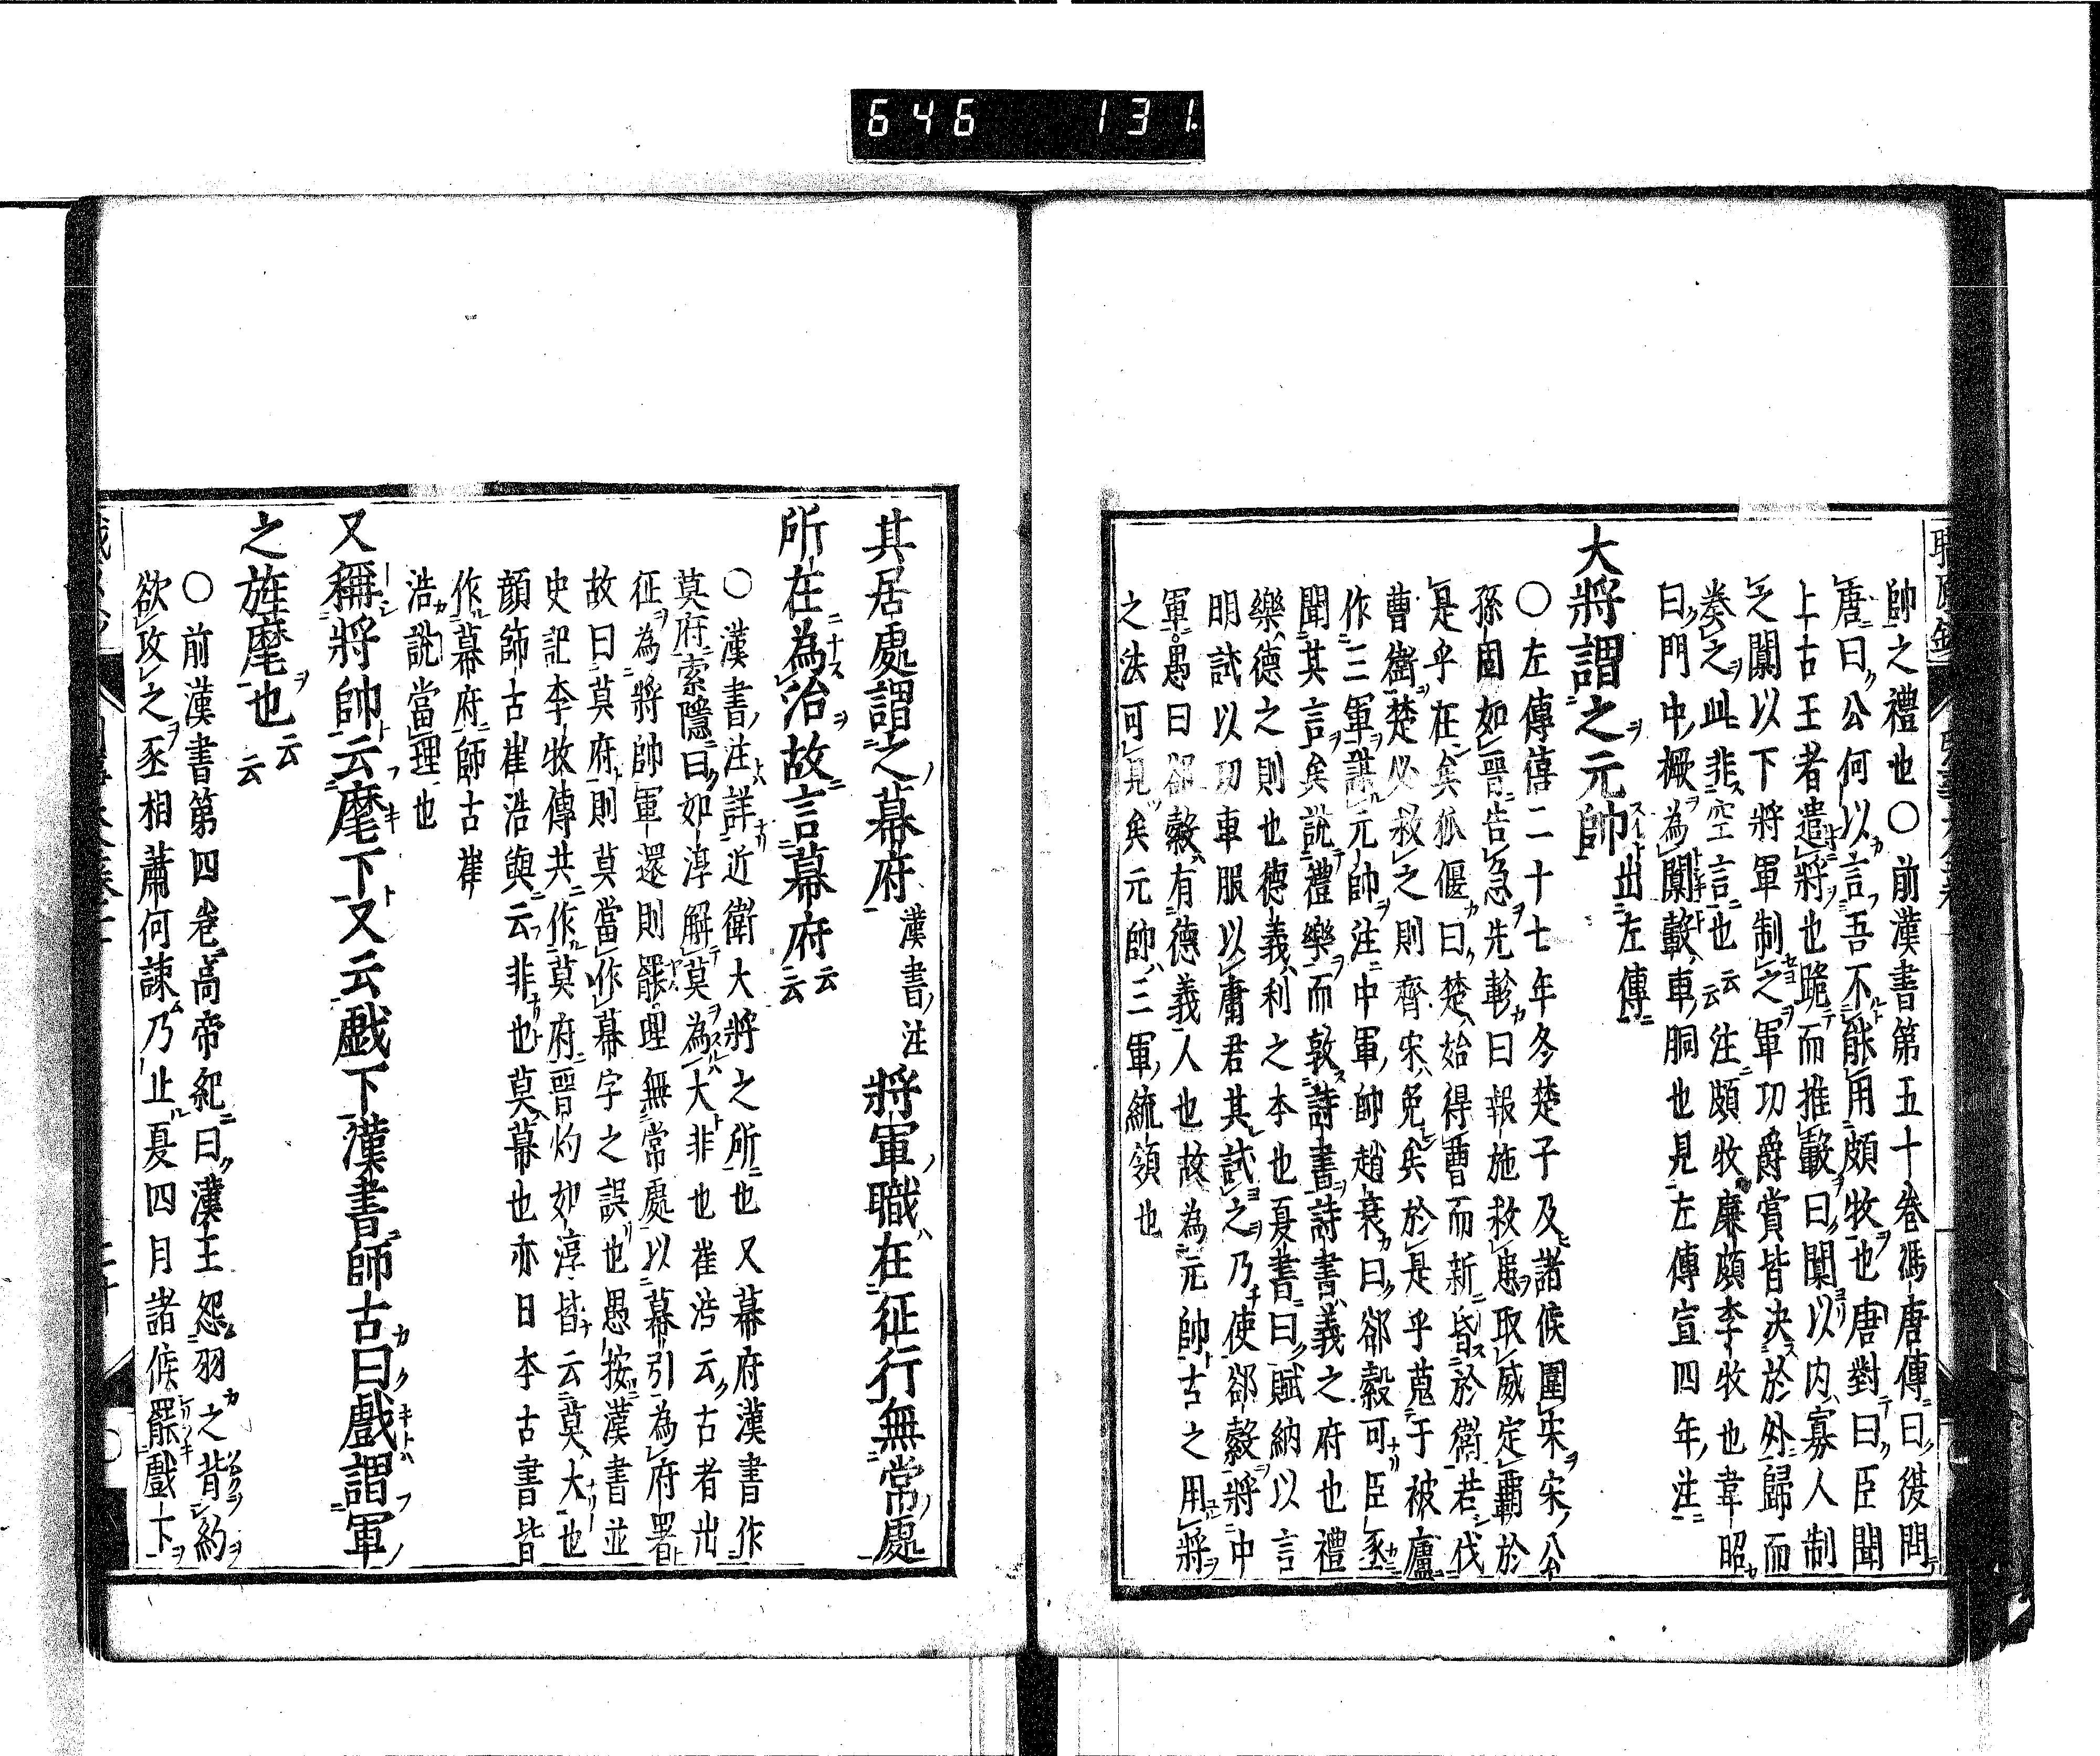 646 131
帥之禮也○前漢書第五十巻馮唐傳曰後問
唐曰公何以言吾不能用頗牧也唐對曰臣聞
上古王者遣將也跪而推轂曰闑以内寡人制
之闑以下將軍制之軍功爵賞皆決於外歸而
奏之此非空言也云云注頗牧廉頗李牧也韋昭
曰門中橛為闑轂車胴也見左傳宣四年注
大將謂之元帥出左傳
○左傳僖二十七年冬楚子及諸侯圍宋宋公
孫固如晋告急先軫曰報施救患取威定覇於
是乎在矣狐偃曰楚始得曹而新昏於衛若伐
曹衛楚必救之則齊宋免矣於是乎蒐于被廬
作三軍謀元帥注中軍帥趙衰曰郤縠可臣亟
聞其言矣說禮樂而敦詩書詩書義之府也禮
樂德之則也德義利之本也夏書曰賦納以言
明試以功車服以庸君其試之乃使郤縠將中
軍愚曰郤縠有德義人也故為元帥古之用將
之法可見矣元帥三軍統領也
其居處謂之幕府漢書注將軍職在征行無常處
所在為治故言幕府云云
○漢書注詳近衛大將之所也又幕府漢書作
莫府索隱曰如淳解莫為大非也崔浩云古者出
征為將帥軍還則罷理無常處以幕引為府署
故曰莫府則莫當作幕字之誤也愚按漢書並
史記李牧傳共作莫府晋灼如淳皆云莫大也
顔師古崔浩與云非也莫幕也亦曰本古書皆
作幕府師古崔
浩說當理也
又稱將帥云麾下又云戲下漢書師古曰戲謂軍
之旌麾也云云
○前漢書第四巻高帝紀曰漢王怨羽之背約
欲攻之丞相蕭何諫乃止夏四月諸侯罷戲下